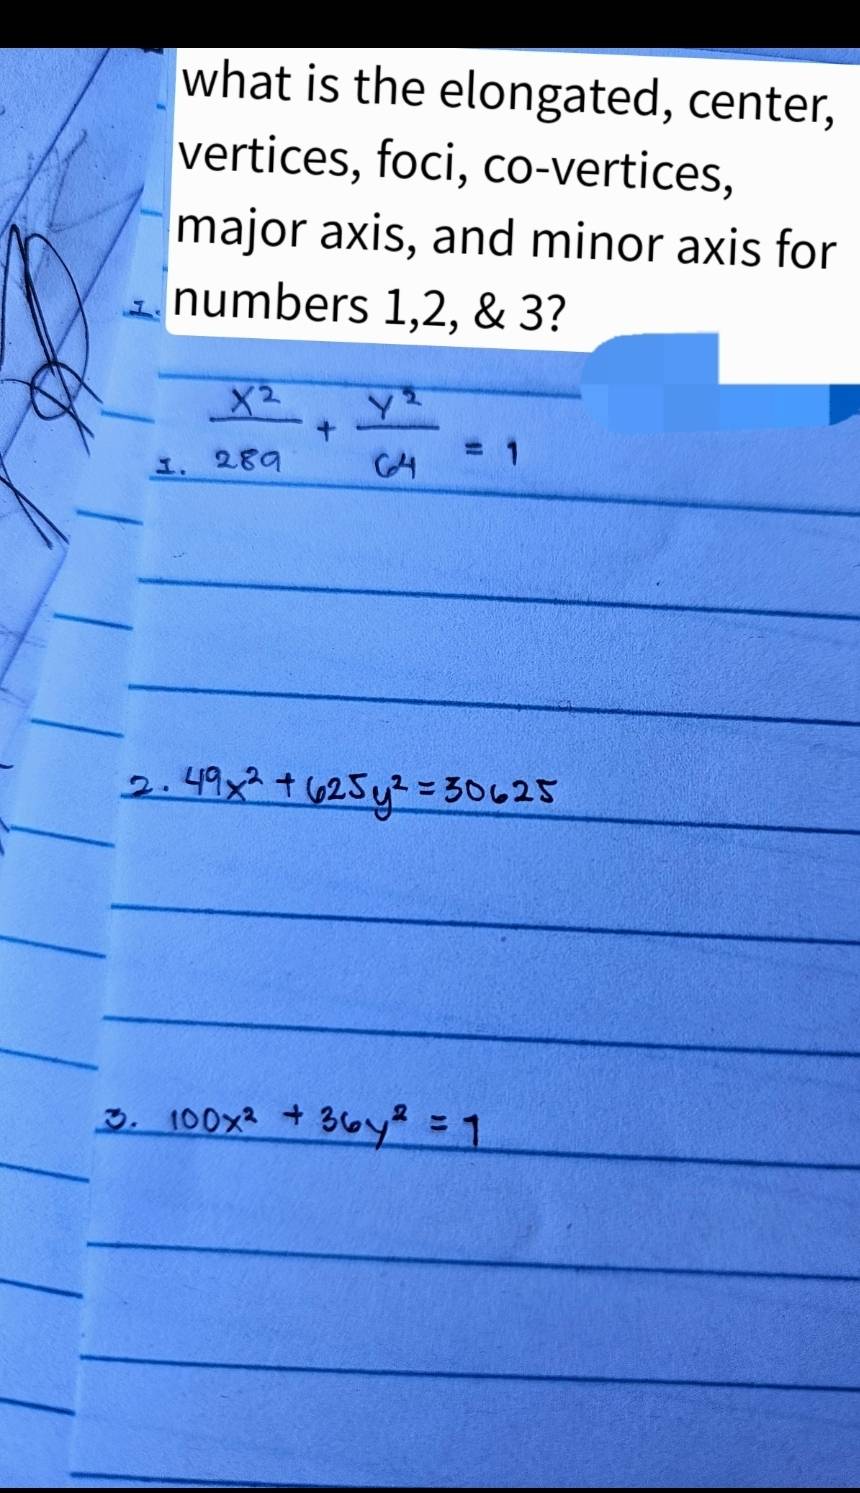 what is the elongated, center,
vertices, foci, co-vertices,
major axis, and minor axis for
1. numbers 1,2, & 3?
1. x²/289 + y²/64 = 1
2. 49x² + 625y² = 30625
3. 100x² + 36y² = 1